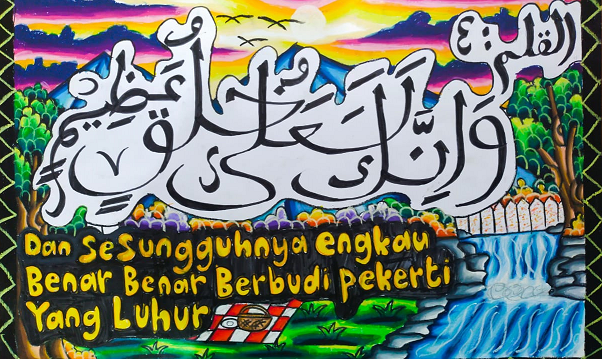 القلم : ٤
وَاِنَّكَ لَعَلَى خُلُقٍ عَظِيْمٍ
Dan Sesungguhnya engkau
Benar Benar Berbudi pekerti
Yang Luhur